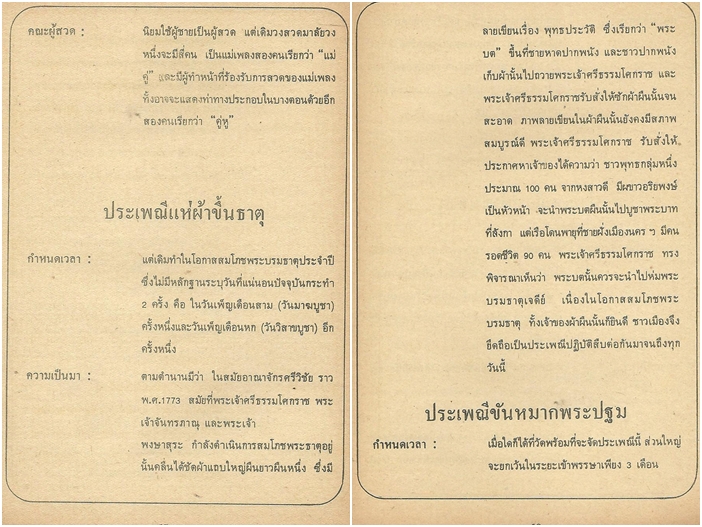 คณะผู้สวด :
นิยมใช้ผู้ชายเป็นผู้สวด แต่เดิมวงสวดมาลัยวง
หนึ่งจะมีสี่คน เป็นแม่เพลงสองคนเรียกว่า “แม่
คู่” และมีผู้ทำหน้าที่ร้องรับการสวดของแม่เพลง
ทั้งอาจจะแสดงท่าทางประกอบในบางตอนด้วยอีก
สองคนเรียกว่า “คู่หู”
ประเพณีแห่ผ้าขึ้นธาตุ
กำหนดเวลา :
แต่เดิมทำในโอกาสสมโภชพระบรมธาตุประจำปี
ซึ่งไม่มีหลักฐานระบุวันที่แน่นอนปัจจุบันกระทำ
2 ครั้ง คือ ในวันเพ็ญเดือนสาม (วันมาฆบูชา)
ครั้งหนึ่งและวันเพ็ญเดือนหก (วันวิสาขบูชา) อีก
ครั้งหนึ่ง
ความเป็นมา :
ตามตำนานมีว่า ในสมัยอาณาจักรศรีวิชัย ราว
พ.ศ.1773 สมัยที่พระเจ้าศรีธรรมโศกราช พระ
เจ้าจันทรภาณุ และพระเจ้า
พงษาสุระ กำลังดำเนินการสมโภชพระธาตุอยู่
นั้นคลื่นได้ซัดผ้าแถบใหญ่ผืนยาวผืนหนึ่ง ซึ่งมี
ลายเขียนเรื่อง พุทธประวัติ ซึ่งเรียกว่า “พระ
บต” ขึ้นที่ชายหาดปากพนัง และชาวปากพนัง
เก็บผ้านั้นไปถวายพระเจ้าศรีธรรมโศกราช และ
พระเจ้าศรีธรรมโศกราชรับสั่งให้ซักผ้าผืนนั้นจน
สะอาด ภาพลายเขียนในผ้าผืนนั้นยังคงมีสภาพ
สมบูรณ์ดี พระเจ้าศรีธรรมโศกราช รับสั่งให้
ประกาศหาเจ้าของได้ความว่า ชาวพุทธกลุ่มหนึ่ง
ประมาณ 100 คน จากหงสาวดี มีผขาวอริยพงษ์
เป็นหัวหน้า จะนำพระบตผืนนั้นไปบูชาพระบาท
ที่ลังกา แต่เรือโดนพายุที่ชายฝั่งเมืองนคร ฯ มีคน
รอดชีวิต 90 คน พระเจ้าศรีธรรมโศกราช ทรง
พิจารณาเห็นว่า พระบตนั้นควรจะนำไปห่มพระ
บรมธาตุเจดีย์ เนื่องในโอกาสสมโภชพระ
บรมธาตุ ทั้งเจ้าของผ้าผืนนั้นก็ยินดี ชาวเมืองจึง
ยึดถือเป็นประเพณีปฏิบัติสืบต่อกันมาจนถึงทุก
วันนี้
ประเพณีขันหมากพระปฐม
กำหนดเวลา :
เมื่อใดก็ได้ที่วัดพร้อมที่จะจัดประเพณีนี้ ส่วนใหญ่
จะยกเว้นในระยะเข้าพรรษาเพียง 3 เดือน